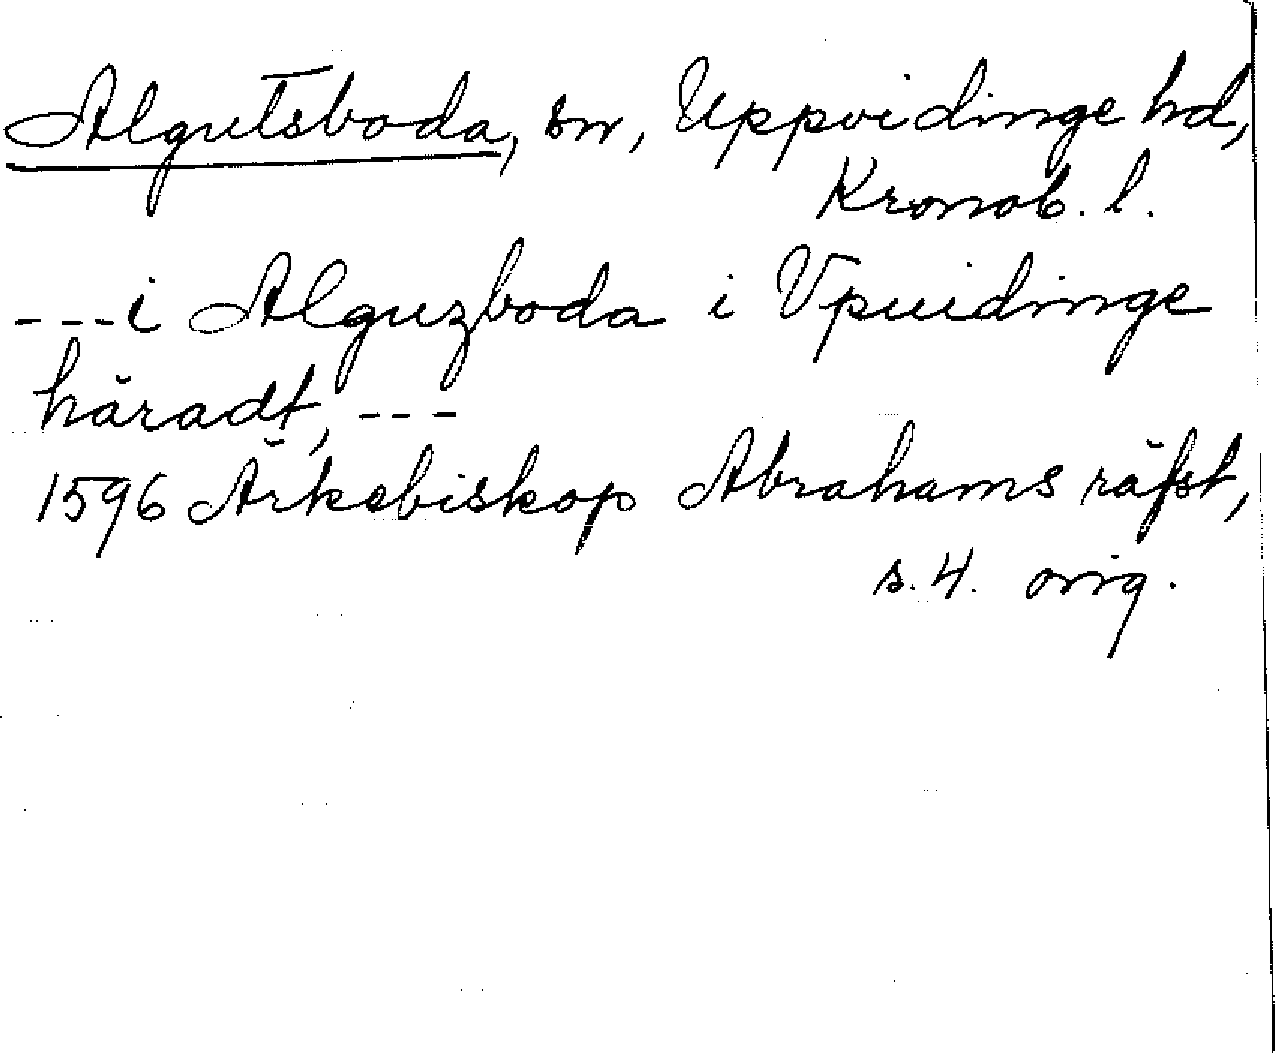 Algutsboda, sn, Uppvidinge hd,
Kronob. l.
---i Alguzboda i Vpuidinge
häradt, ---
1596 Ärkebiskop Abrahams räfst,
s. 4. orig.